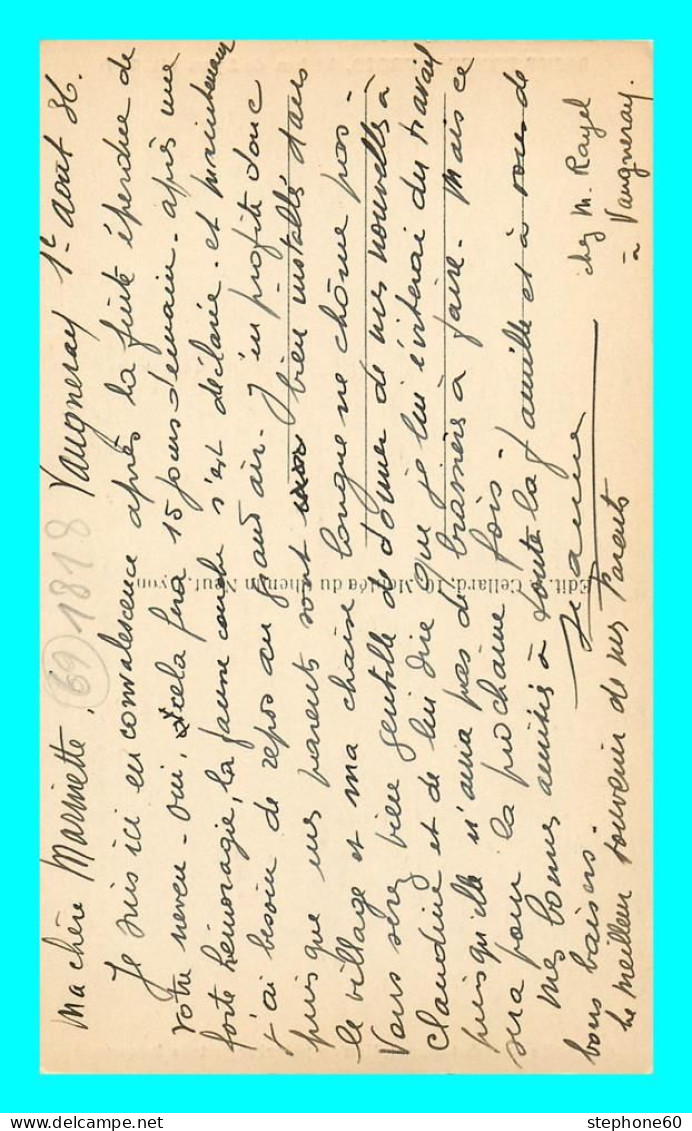 Ma chère Marinette, Vaugneray 1er aout 36.
(69) 1818
Je suis ici en convalescence après la fuite éperdue de
votre neveu - oui, cela fera 15 jours demain - après une
forte hémoragie, la fausse couche s'est déclarée - et maintenant
j'ai besoin de repos au grand air. J'en profite donc
puis que mes parents sont bien installés dans
le village et ma chaise longue ne chôme pas -
Vous serez bien gentille de donner de mes nouvelles à
Claudine et de lui dire que je lui éviterai du travail
puisqu'elle n'aura pas de brassière à faire - Mais ce
sera pour la prochaine fois -
Mes bonnes amitiés à toute la famille et à vous de
bons baisers.
Jeanne
Le meilleur souvenir de mes Parents
chez M. Rayel
à Vaugneray.
Edit. Cellard, 10, Montée du Chemin Neuf, Lyon
stephone60